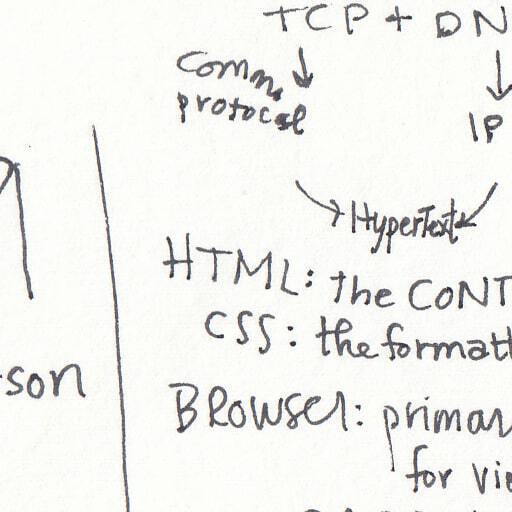 TCP + DN
Comm.
protocol
IP
HyperText
HTML: the CONT
CSS: the formatt
son
BROWSER: primar
for vie